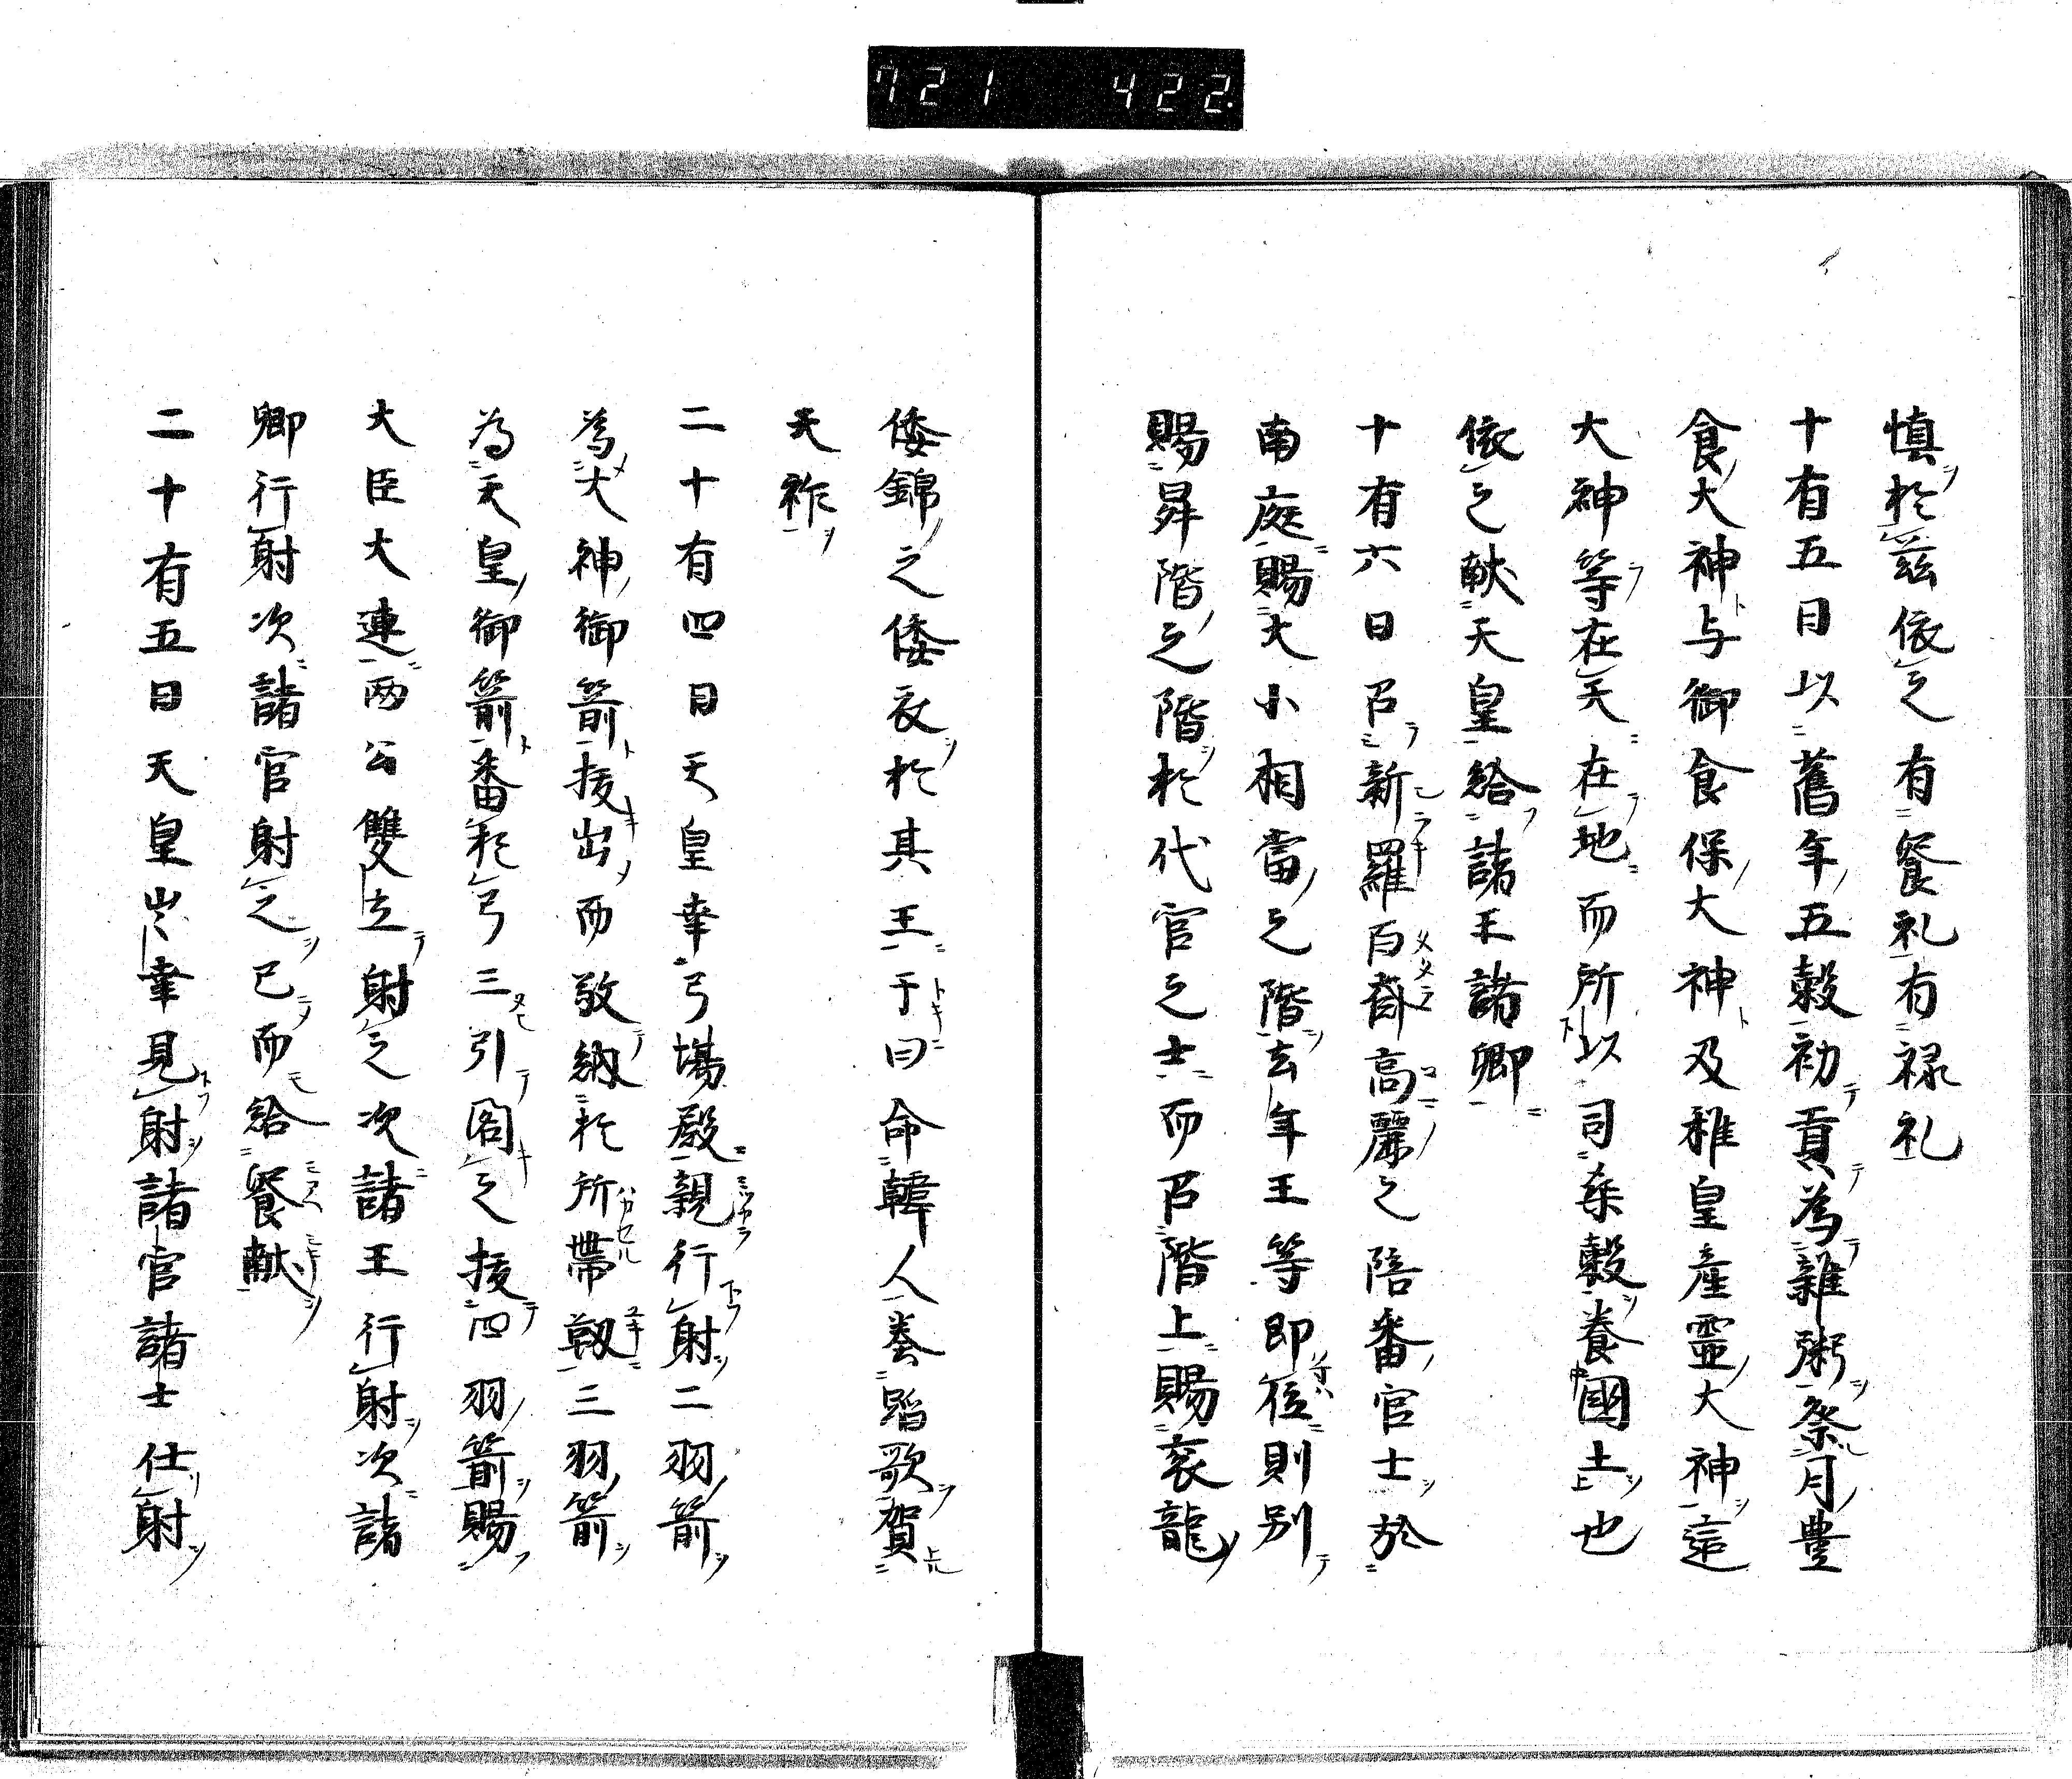 721 422.
慎於茲依之有餐礼有禄礼
十有五日以舊年五穀初貢為雜粥祭月豊
食大神与御食保大神及稚皇産霊大神這
大神等在天在地而所以司桒穀養國土也
依之献天皇給諸王諸卿
十有六日召新羅百濟高麗之陪番官士於
南庭賜大小相當之階去年王等即位則別
賜昇階之階於代官之士而召階上賜袞龍
倭錦之倭衣於其王于曰命韓人奏踏歌賀
天祚
二十有四日天皇幸弓場殿親行射二羽箭
為大神御箭抜出而敬納於所帯靱三羽箭
為天皇御箭番於弓三引閣之抜四羽箭賜
大臣大連両公雙立射之次諸王行射次諸
卿行射次諸官射之已而給餐献
二十有五日天皇出幸見射諸官諸士仕射